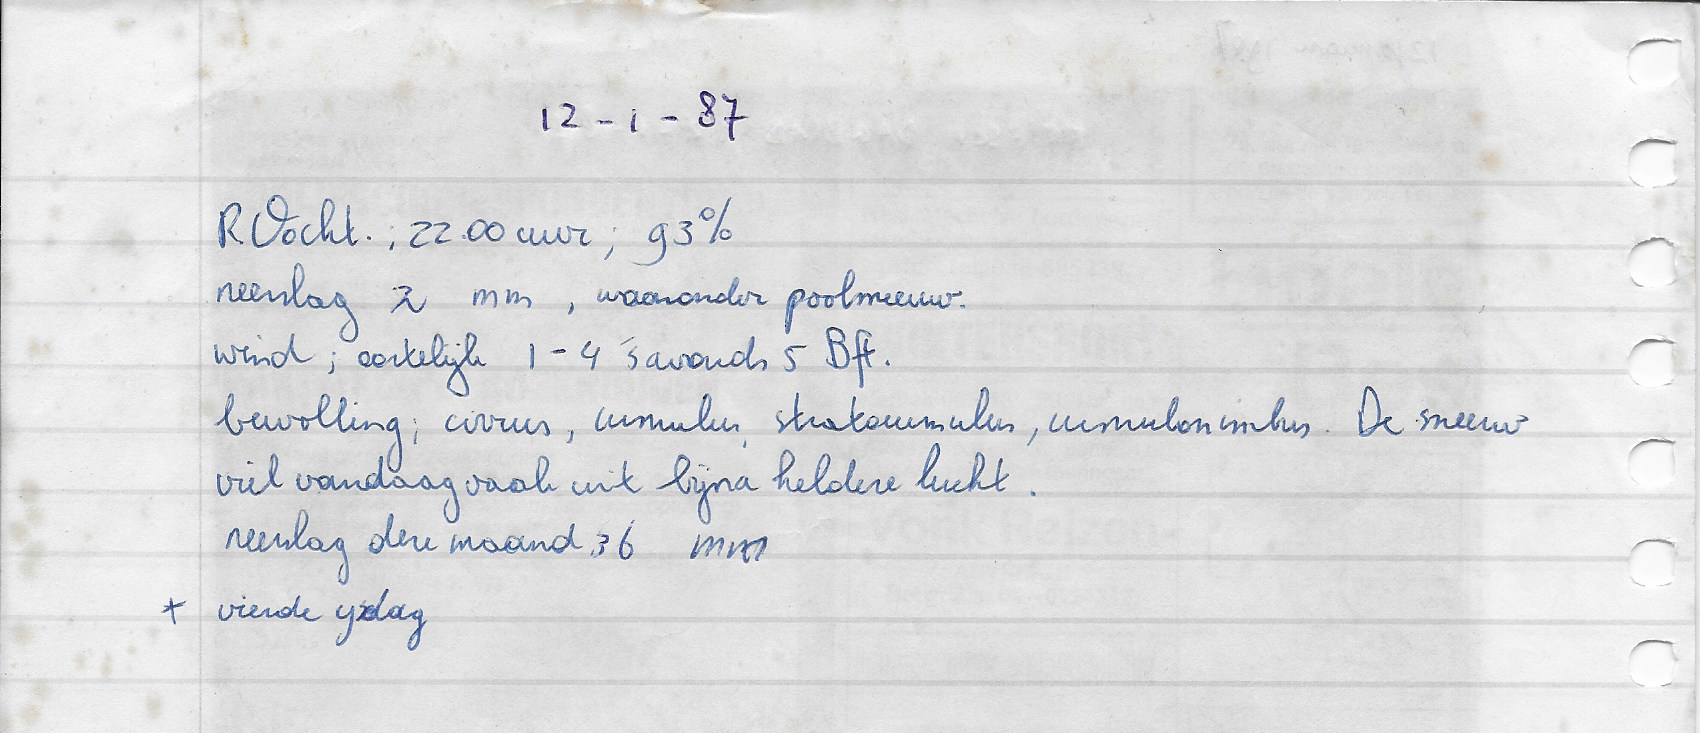 12-1-87
R Vocht. ; 22.00 uur ; 93%
neerslag 2 mm , waaronder poolsneeuw.
wind ; oostelijk 1-4 's avonds 5 Bft.
bewolking ; cirrus , cumulus, stratocumulus , cumulonimbus . De sneeuw
viel vandaag vaak uit bijna heldere lucht .
neerslag deze maand 36 mm
+ vierde ijsdag